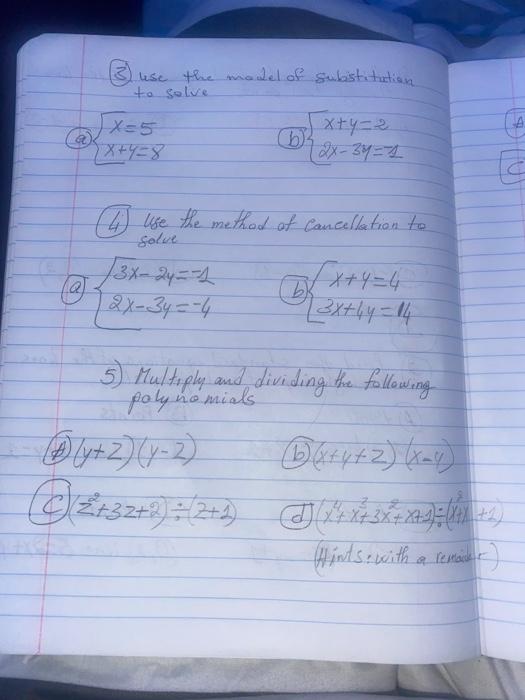 ③ use the model of substitution
to solve
ⓐ { x=5
x+y=8
ⓑ { x+y=2
2x-3y=-1
④ Use the method of Cancellation to
solve
ⓐ { 3x-2y=-1
2x-3y=-4
ⓑ { x+y=4
3x+4y=14
5) Multiply and dividing the following
polynomials
Ⓐ (y+z)(y-z)
ⓑ (x+y+z)(x-y)
Ⓒ (z²+3z+2)÷(z+1)
ⓓ (x⁴+x³+3x²+x+1)÷(x²+x+1)
(Hints: with a remainder)
A
C